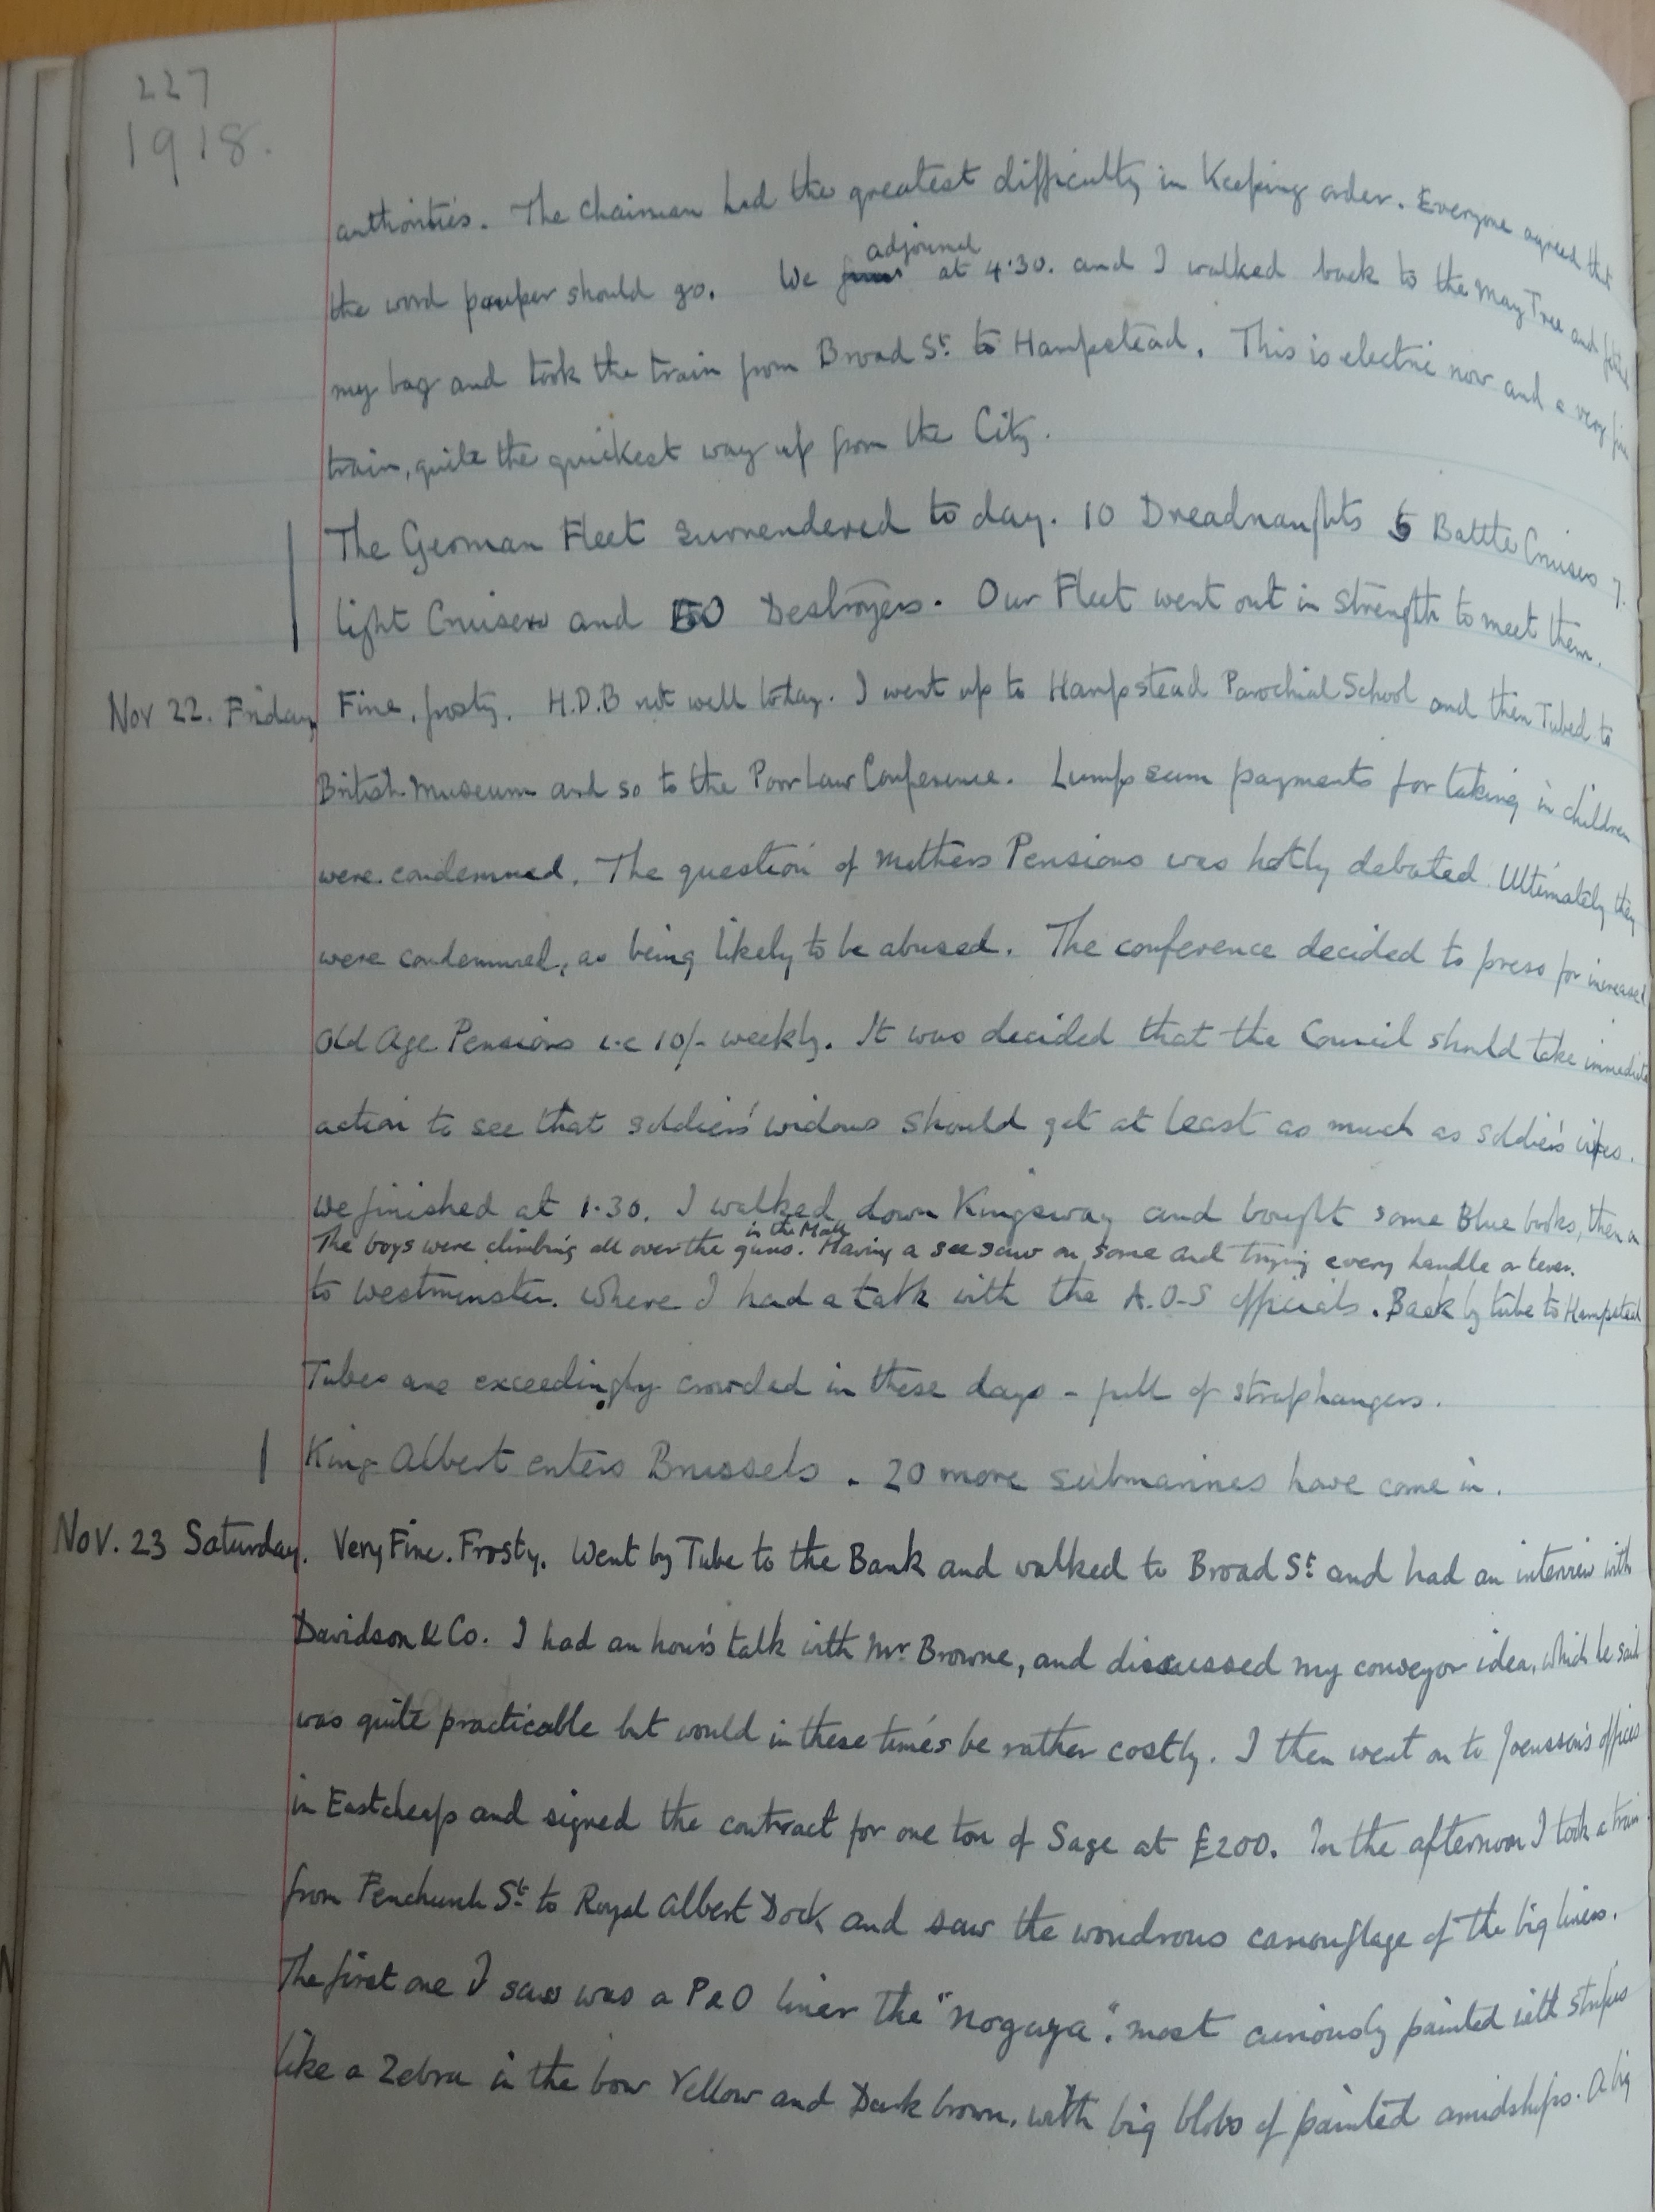 227
1918.
authorities. The Chairman had the greatest difficulty in Keeping order. Everyone agreed that
the word pauper should go. We adjourned at 4.30. and I walked back to the May Tree and fetched
my bag and took the train from Broad St. to Hampstead. This is electric now and a very fine
train, quite the quickest way up from the City.
The German Fleet surrendered to day. 10 Dreadnaughts 5 Battle Cruisers 7.
light Cruisers and 50 Destroyers. Our Fleet went out in strength to meet them.
Nov 22. Friday Fine, frosty. H.D.B not well today. I went up to Hampstead Parochial School and then Tubed to
British Museum and so to the Poor Law Conference. Lump sum payments for taking in children
were condemned. The question of Mothers Pensions was hotly debated. Ultimately they
were condemned, as being likely to be abused. The conference decided to press for increased
Old Age Pensions i.e 10/- weekly. It was decided that the Council should take immediate
action to see that soldiers' widows should get at least as much as soldiers wives.
We finished at 1.30. I walked down Kingsway and bought some Blue books, then on
The boys were climbing all over the guns in the Mall. Having a see saw on some and trying every handle or lever.
to Westminster. Where I had a talk with the A.O.S officials. Back by tube to Hampstead
Tubes are exceedingly crowded in these days - full of straphangers.
King Albert enters Brussels. 20 more submarines have come in.
Nov. 23 Saturday. Very Fine. Frosty. Went by Tube to the Bank and walked to Broad St. and had an interview with
Davidson & Co. I had an hour's talk with Mr. Browne, and discussed my conveyor idea, which he said
was quite practicable but would in these times be rather costly. I then went on to offices
in Eastcheap and signed the contract for one ton of Sage at £200. In the afternoon I took a train
from Fenchurch St. to Royal Albert Dock and saw the wondrous camouflage of the big liners.
The first one I saw was a P & O liner the "Nogoya". most curiously painted with stripes
like a Zebra in the bow Yellow and Dark brown, with big blobs of painted amidships. A big